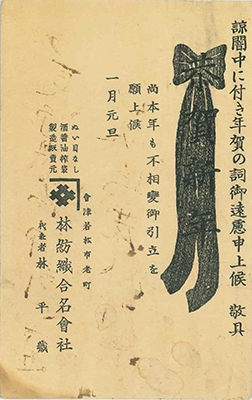 諒闇中に付き年賀の詞御遠慮申上候 敬具
賀新年
尚本年も不相變御引立を
願上候
一月元旦
ぬい目なし
酒醤油搾袋
製造販賣元
會津若松市老町
林紡織合名會社
代表者 林平藏